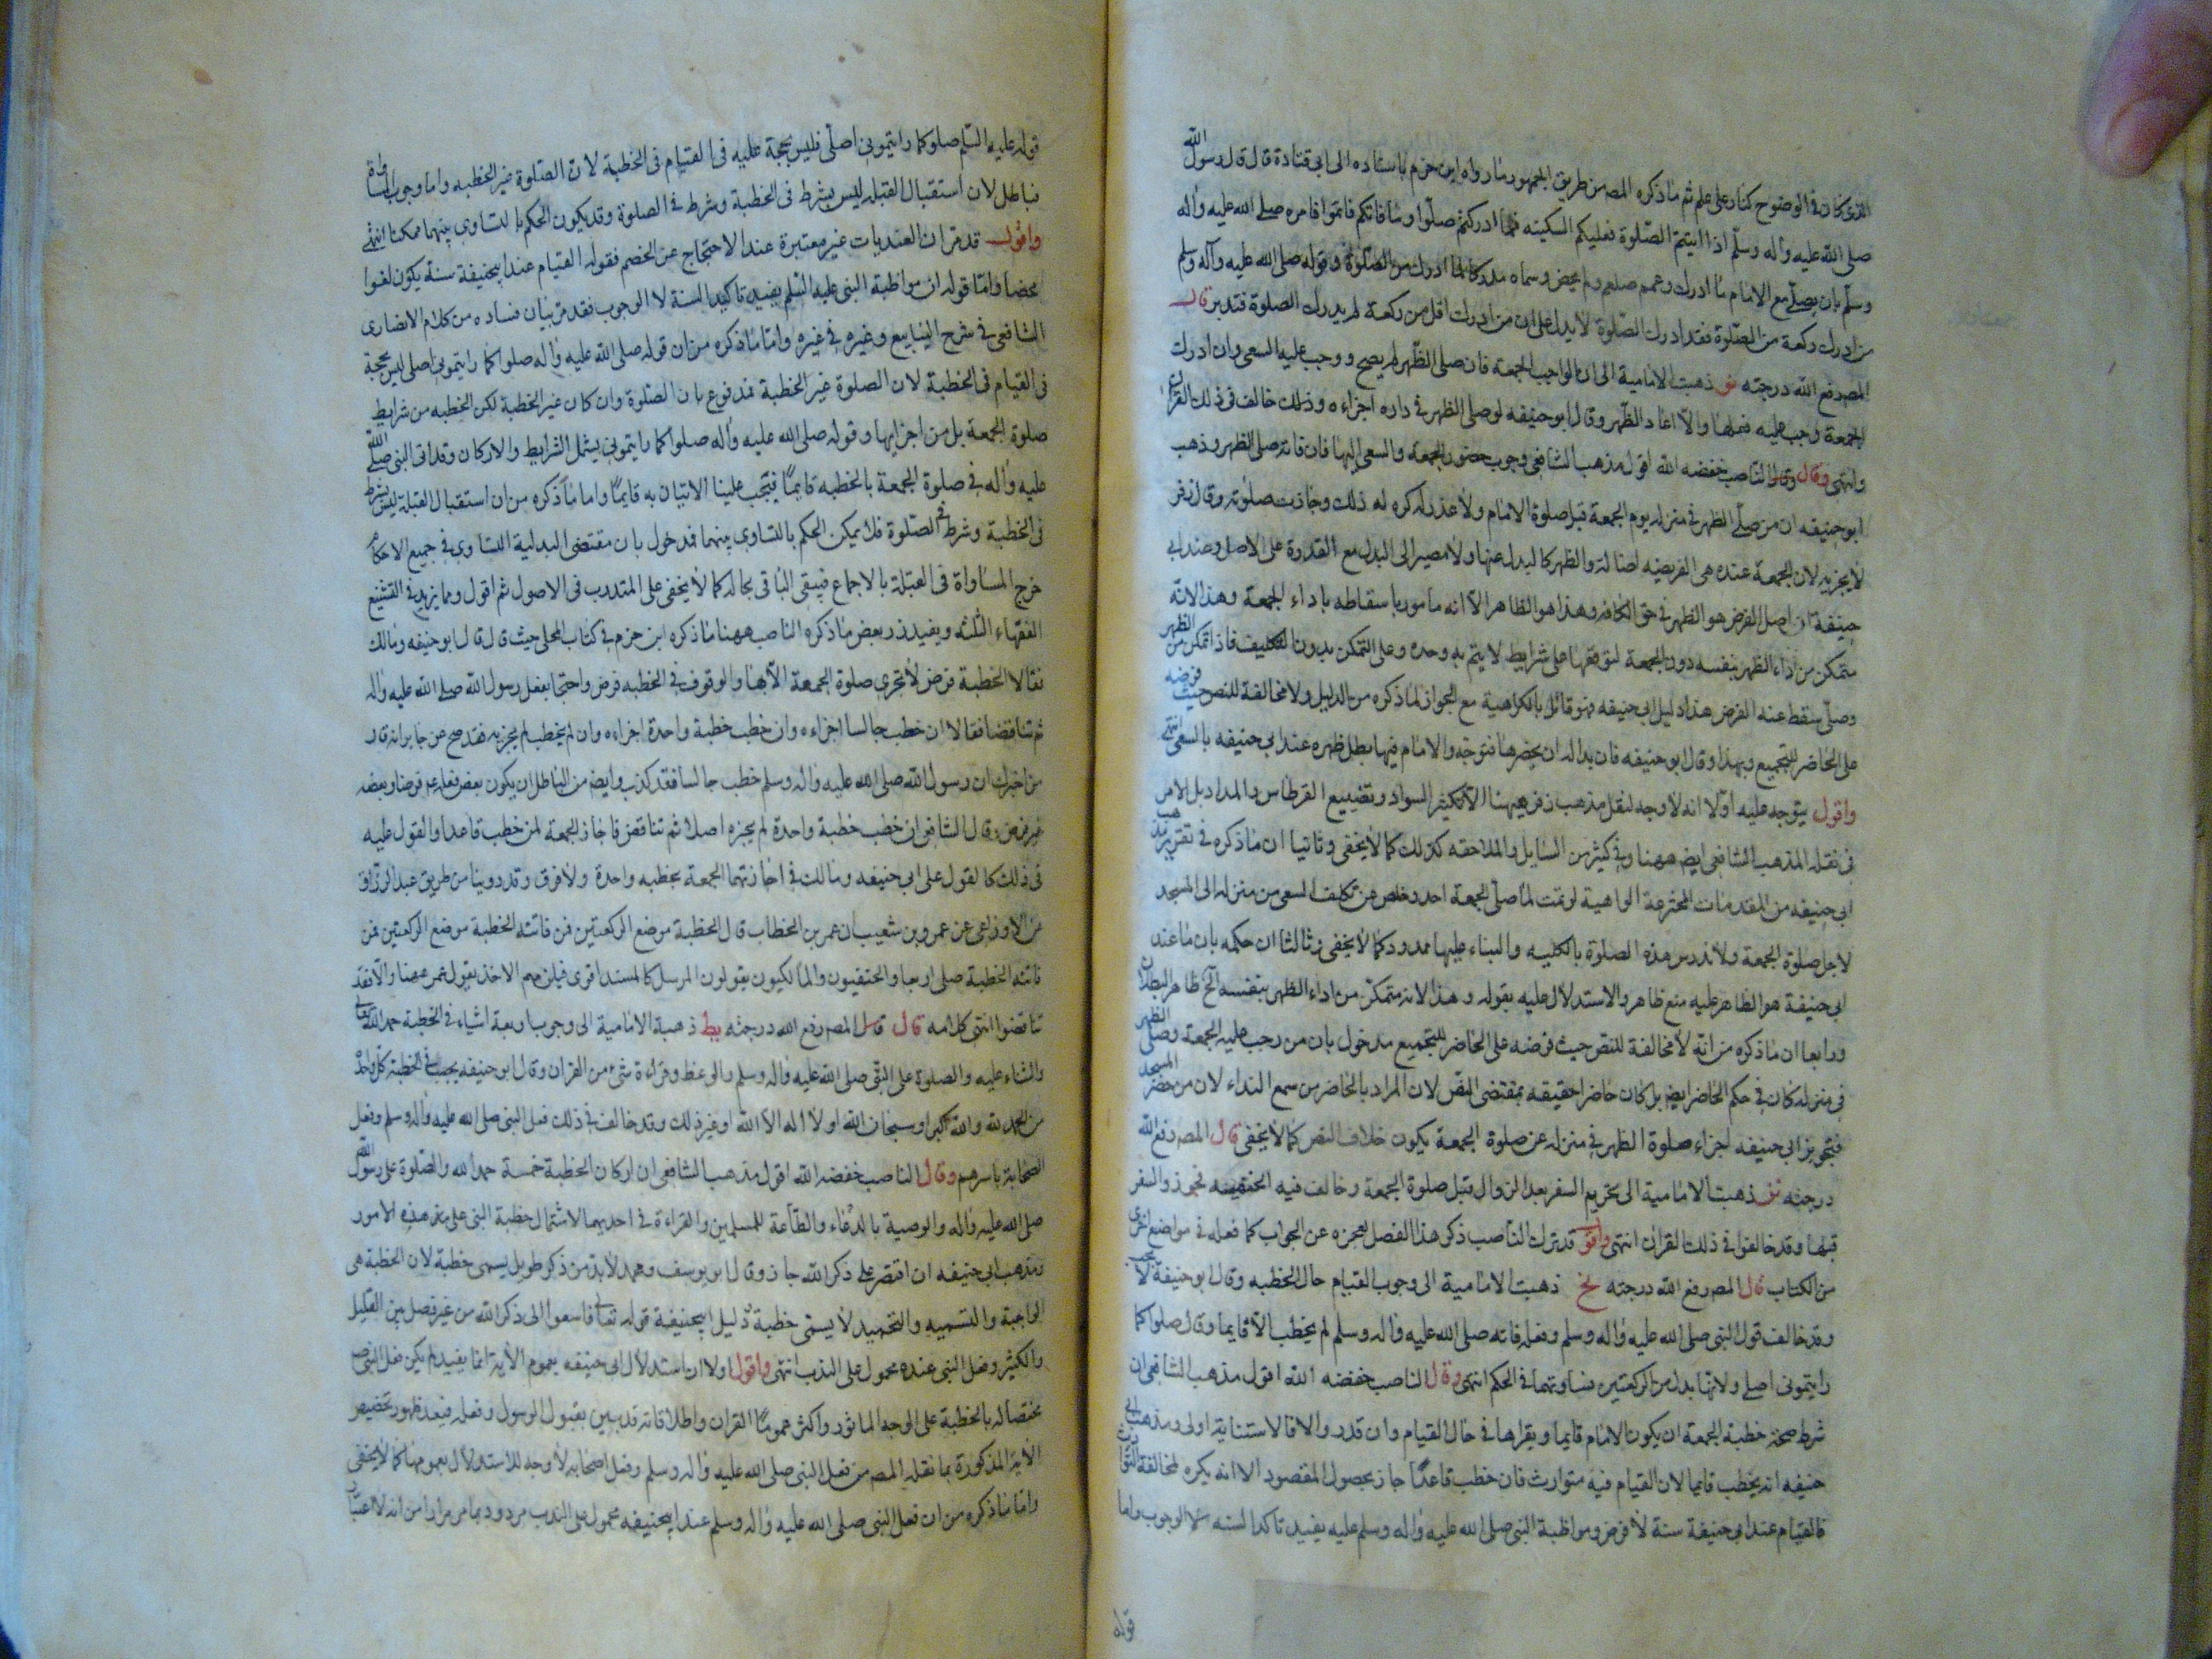 الذى كان فى الوضوح كنار على علم ثم ما ذكره المصر من طريق الجمهور ما رواه ابن حزم باسناده الى ابى قتادة قال قال رسول الله
صلى الله عليه وآله وسلم اذا اتيتم الصلوة فعليكم السكينه فما ادركتم صلوا وما فاتكم فاتموا فامره صلى الله عليه وآله
وسلم بان يصلى مع الامام ما ادرك وعمم صلعم ولم يخص وسماه مدركا لما ادرك من الصلوة وقوله صلى الله عليه وآله وسلم
من ادرك ركعة من الصلوة فقد ادرك الصلوة لا يدل على ان من ادرك اقل من ركعة لم يدرك الصلوة فتدبر قال
المصر رفع الله درجته نو ذهبت الامامية الى ان الواجب الجمعة فان صلى الظهر لم يصح ووجب عليه السعى وان ادرك
الجمعة وجب عليه فعلها والا اعاد الظهر وقال ابو حنيفه لو صلى الظهر فى داره اجزاءه وذلك خالف فى ذلك القران
وانتهى وقال الناصب خفضه الله اقول مذهب الشافعى وجوب حضور الجمعة والسعى اليها فان فاته صلى الظهر وذهب
ابو حنيفه ان من صلى الظهر فى منزله يوم الجمعة قبل صلوة الامام ولا عذر له كره له ذلك وجازت صلوته وقال زفر
لا يجزيه لان الجمعة عنده هى الفريضه اصالة والظهر كالبدل عنها ولا مصير الى البدل مع القدرة على الاصل وعند ابى
حنيفة ان اصل الفرض هو الظهر فى حق الكافه وهذا هو الظاهر الا انه مامور باسقاطه باداء الجمعة وهذا لانه
متمكن من اداء الظهر بنفسه دون الجمعة لتوقفها على شرايط لا يتم به وحده وعلى التمكن يدور التكليف فاذا تمكن من الظهر
وصلى سقط عنه الفرض هذا دليل ابى حنيفه فهو قائل بالكراهية مع الجواز لما ذكره من الدليل ولا مخالفة للنص حيث فرضه
على الحاضر للتجميع وبهذا وقال ابو حنيفه فان بدا له ان يحضرها فتوجه والامام فيها بطل ظهره عند ابى حنيفه بالسعى انتهى
واقول يتوجه عليه اولا انه لا وجه لنقل مذهب زفر ههنا الا تكثير السواد وتضييع القرطاس والمداد بل الامر
فى نقله المذهب الشافعى ايضا ههنا وفى كثير من المسايل والملاحقه كذلك كما لا يخفى وثانيا ان ما ذكره فى تقرير مذهب
ابى حنيفه من المقدمات المخترعة الواهية لو تمت لما صلى الجمعة احد وخلص عن تكلف السعى من منزله الى المسجد
لاجل صلوة الجمعة ولاندرس هذه الصلوة بالكليه والبناء عليها مردود كما لا يخفى وثالثا ان حكمه بان ما عند
ابى حنيفة هو الظاهر عليه منع ظاهر والاستدلال عليه بقوله وهذا لانه متمكن من اداء الظهر بنفسه الخ ظاهر البطلان
ورابعا ان ما ذكره من انه لا مخالفة للنص حيث فرضه على الحاضر للتجميع مدخول بان من وجب عليه الجمعة وصلى الظهر
فى منزله كان فى حكم الحاضر ايضا بل كان حاضرا حقيقه بمقتضى النص لان المراد بالحاضر من سمع النداء لان من حضر المسجد
فتجويز ابى حنيفه اجزاء صلوة الظهر فى منزله عن صلوة الجمعة يكون خلاف النص كما لا يخفى قال المصر رفع الله
درجته نز ذهبت الامامية الى تحريم السفر بعد الزوال قبل صلوة الجمعة وخالف فيه الحنفيه فجوزوا السفر
قبلها وقد خالفوا فى ذلك القران انتهى واقول قد ترك الناصب ذكر هذا الفصل لعجزه عن الجواب كما فعله فى مواضع اخرى
من الكتاب قال المصر رفع الله درجته نح ذهبت الامامية الى وجوب القيام حال الخطبه وقال ابو حنيفة لا يجب
وقد خالف قول النبى صلى الله عليه وآله وسلم وفعله فانه صلى الله عليه وآله وسلم لم يخطب الا قايما وقال صلوا كما
رايتمونى اصلى ولانها بدل من الركعتين فساوتهما فى الحكم انتهى وقال الناصب خفضه الله اقول مذهب الشافعى ان
شرط صحة خطبة الجمعة ان يكون الامام قايما ويقراها فى حال القيام وان قدر والا فالاستنابة اولى ومذهب ابى
حنيفه انه يخطب قايما لان القيام فيه متوارث فان خطب قاعدا جاز بحصول المقصود الا انه يكره لمخالفة التوارث
فالقيام عند ابى حنيفة سنة لا فرض ومواظبة النبى صلى الله عليه وآله وسلم عليه يفيد تاكد السنه لا الوجوب واما
قوله
قوله عليه السلم صلوا كما رايتمونى اصلى فليس بحجة عليه فى القيام فى الخطبة لان الصلوة غير الخطبه واما وجوب المساواة
فباطل لان استقبال القبلة ليس بشرط فى الخطبة وشرط فى الصلوة وقد يكون الحكم بالتساوى بينهما ممكنا انتهى
واقول قد مر ان العنديات غير معتبرة عند الاحتجاج عن الخصم فقوله القيام عند ابيحنيفة سنة يكون لغوا
محضا واما قوله ان مواظبة النبى عليه السلم يفيد تاكيد السنة لا الوجوب فقد مر بيان فساده من كلام الانصارى
الشافعى فى شرح الينابيع وغيره فى غيره واما ما ذكره من ان قوله صلى الله عليه وآله صلوا كما رايتمونى اصلى ليس بحجة
فى القيام فى الخطبة لان الصلوة غير الخطبة فمدفوع بان الصلوة وان كان غير الخطبة لكن الخطبه من شرايط
صلوة الجمعة بل من اجزايها وقوله صلى الله عليه وآله صلوا كما رايتمونى يشمل الشرايط والاركان وقد اتى النبى صلى الله
عليه وآله فى صلوة الجمعة بالخطبه قائما فيجب علينا الاتيان به قايما واما ما ذكره من ان استقبال القبلة ليس بشرط
فى الخطبة وشرط فى الصلوة فلا يمكن الحكم بالتساوى بينهما فمدخول بان مقتضى البدلية التساوى فى جميع الاحكام
خرج المساواة فى القبلة بالاجماع فيبقى الباقى بحاله كما لا يخفى على المتدرب فى الاصول ثم اقول ومما يزيد فى التشنيع
الفقهاء الثلثه ويفيد رد بعض ما ذكره الناصب ههنا ما ذكره ابن حزم فى كتاب المحلى حيث قال قال ابو حنيفه ومالك
فقالا الخطبة فرض لا تجزى صلوة الجمعة الا بها والوقوف فى الخطبه فرض واحتجا بفعل رسول الله صلى الله عليه وآله
ثم تناقضا فقالا ان خطب جالسا اجزاءه وان خطب خطبة واحدة اجزاءه وان لم يخطب لم يجزيه فقد صح عن جابر انه قال
من اخبرك ان رسول الله صلى الله عليه وآله وسلم خطب جالسا فقد كذب وايضا من الباطل ان يكون بعض فعله عم فرضا وبعضه
غير فرض وقال الشافعى ان خطب خطبة واحدة لم يجزه اصلا ثم تناقض فاجاز الجمعة لمن خطب قاعدا والقول عليه
فى ذلك كالقول على ابى حنيفه ومالك فى اجازتهما الجمعة بخطبه واحدة ولا فرق وقد روينا من طريق عبد الرزاق
عن الاوزاعى عن عمرو بن شعيب ان عمر بن الخطاب قال الخطبة موضع الركعتين فمن فاتته الخطبة موضع الركعتين فمن
فاتته الخطبة صلى اربعا والحنفيون والمالكيون يقولون المرسل كالمسند اقوى فيلزمهم الاخذ بقول عمر ههنا والا فقد
تناقضوا انتهى كلامه قال المصر رفع الله درجته نط ذهبة الامامية الى وجوب اربعة اشياء فى الخطبة حمد الله تعالى
والثناء عليه والصلوة على النبى صلى الله عليه وآله وسلم والوعظ وقراءة شىء من القران وقال ابو حنيفه يجب فى الخطبة كلمة واحدة
من الحمد لله والله اكبر او سبحان الله او لا اله الا الله او غير ذلك وقد خالف فى ذلك فعل النبى صلى الله عليه وآله وسلم وفعل
الصحابة باسرهم وقال الناصب خفضه الله اقول مذهب الشافعى ان اركان الخطبة خمسة حمد الله والصلوة على رسول الله
صلى الله عليه وآله والوصية بالدعاء والطاعة للمسلمين والقراءة فى احديهما لاشتمال خطبة النبى على هذه الامور
ومذهب ابى حنيفه ان اقتصر على ذكر الله جاز وقال ابو يوسف ومحمد لا بد من ذكر طويل يسمى خطبة لان الخطبة هى
الواجبة والتسميه والتحميد لا يسمى خطبة دليل ابيحنيفة قوله تعالى فاسعوا الى ذكر الله من غير فصل بين القليل
والكثير وفعل النبى عنده محمول على الندب انتهى واقول اولا ان استدلال ابى حنيفه بعموم الآية انما يفيد لم يكن فعل النبى ص
مختصا له بالخطبة على الوجه الماثور واكثر عموما القران واطلاقاته قد بين بقبول الرسول وفعله فبعد ظهور تخصيص
الآية المذكورة بما نقله المصر من فعل النبى صلى الله عليه وآله وسلم وفعل اصحابه لا وجه للاستدلال بعمومها كما لا يخفى
واما ما ذكره من ان فعل النبى صلى الله عليه وآله وسلم عند ابيحنيفه محمول على الندب مردود بما مر مرارا من انه لا اعتبار